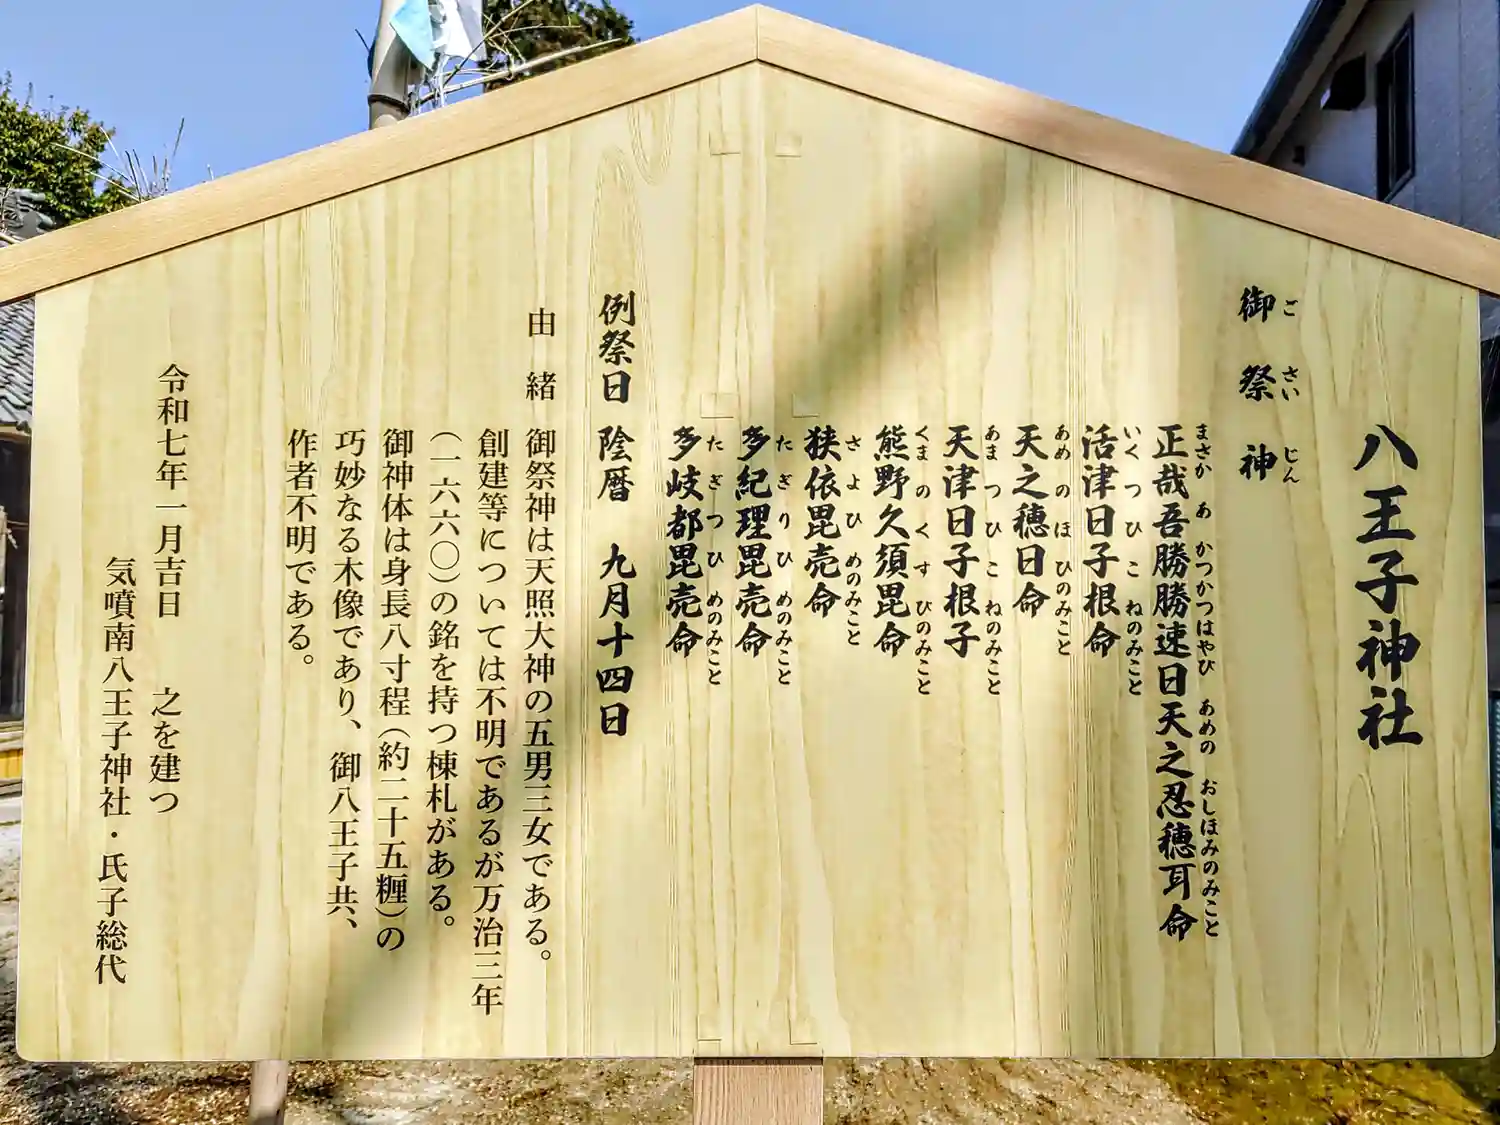 八王子神社
御祭神
ごさいじん
正哉吾勝勝速日天之忍穂耳命
まさかあかつかつはやびあめのおしほみのみこと
活津日子根命
いくつひこねのみこと
天之穂日命
あめのほひのみこと
天津日子根子
あまつひこねのみこと
熊野久須毘命
くまのくすびのみこと
狭依毘売命
さよひめのみこと
多紀理毘売命
たぎりひめのみこと
多岐都毘売命
たぎつひめのみこと
例祭日 陰暦 九月十四日
由緒 御祭神は天照大神の五男三女である。
創建等については不明であるが万治三年
(一六六〇)の銘を持つ棟札がある。
御神体は身長八寸程(約二十五糎)の
巧妙なる木像であり、御八王子共、
作者不明である。
令和七年一月吉日 之を建つ
気噴南八王子神社・氏子総代